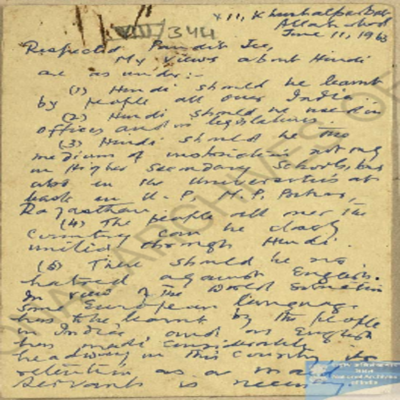 344
411, Khushalparbat
Allahabad
June 11, 1963
Respected Pandit Jee,
My views about Hindi
are as under:-
(1) Hindi should be learnt
by people all over India.
(2) Hindi should be used in
offices and in legislatures.
(3) Hindi should be the
medium of instruction not only
in Higher Secondary Schools, but
also in the Universities at
least in U.P., M.P., Bihar,
Rajasthan.
(4) The people all over the
country can be closely
united through Hindi.
(5) There should be no
hatred against English.
In view of the World situation
some European language
has to be learnt by the people
in India and as English
has made considerable
headway in this country, its
retention as a
servant is